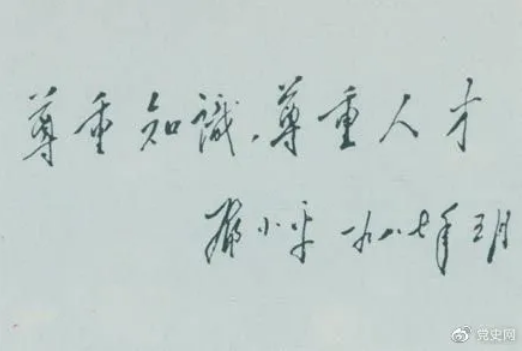 尊重知識、尊重人才
邓小平 一九八七年五月
党史网